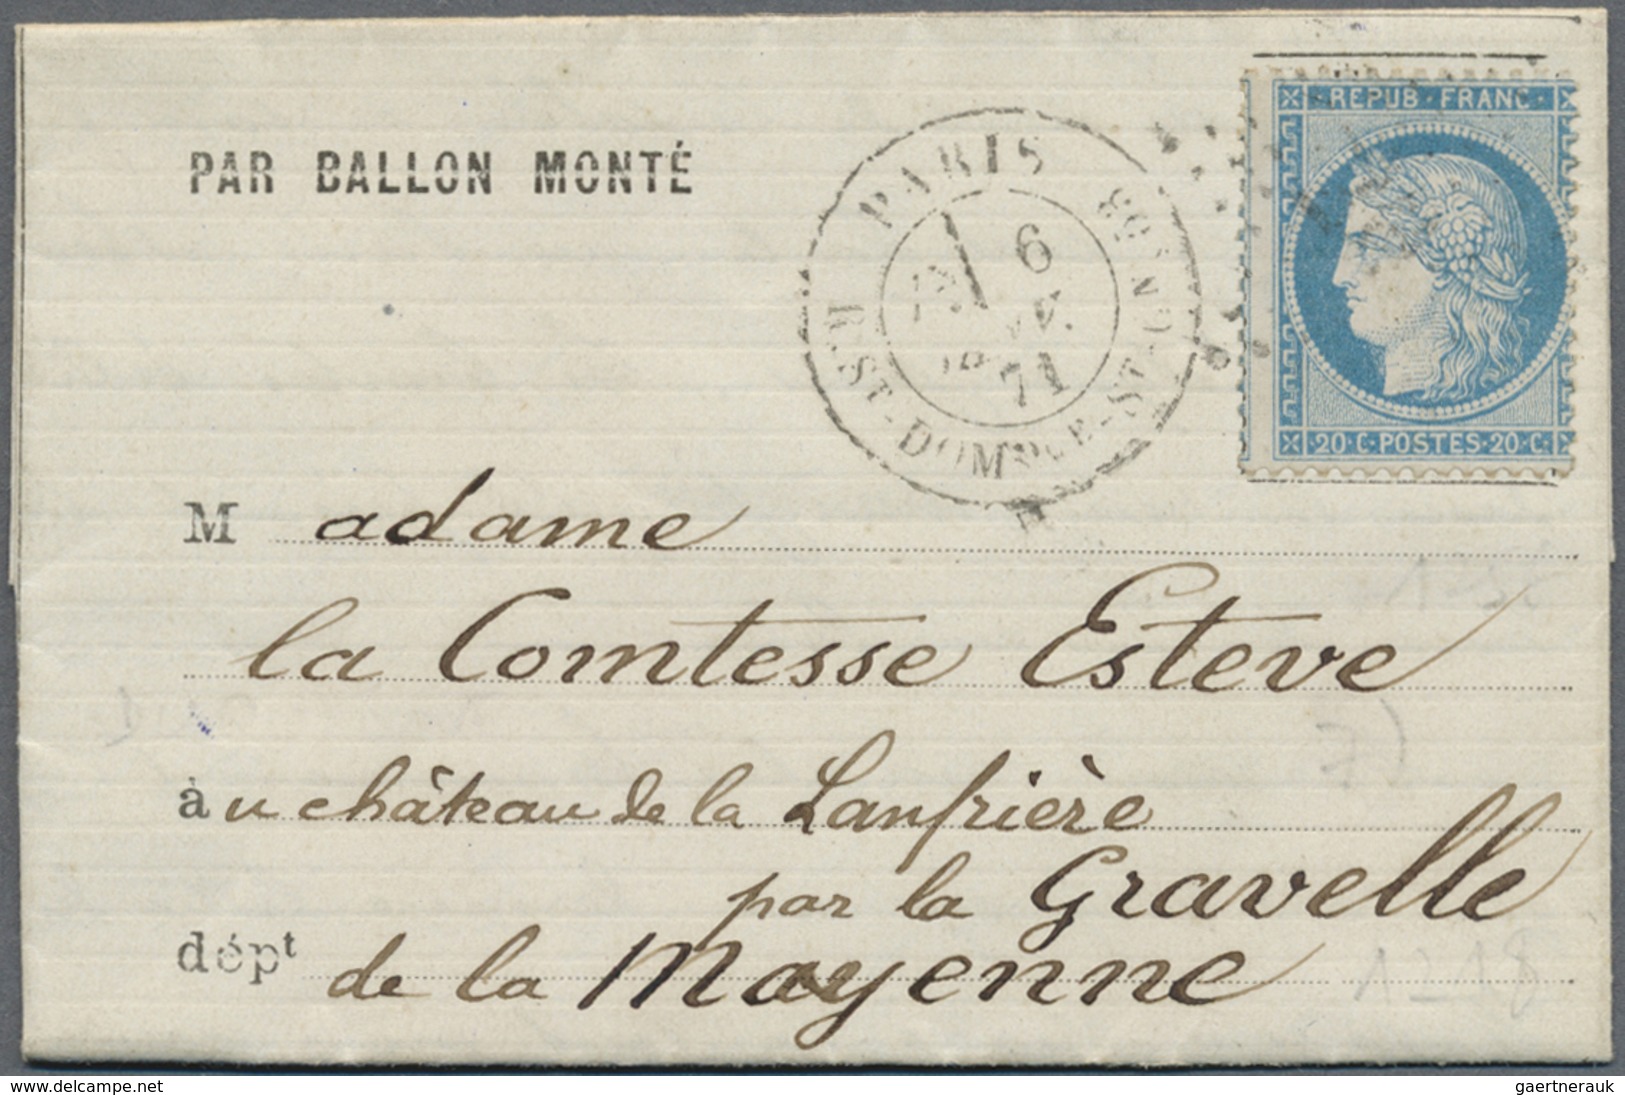 REPUB·FRANC·
PAR BALLON MONTÉ
PARIS
6
71
20·C·POSTES·20·C·
Madame
la Comtesse Esteve
àu château de la Lanfrière
par la Gravelle
dépt de la Mayenne
delcampe.net
gaertnerauk